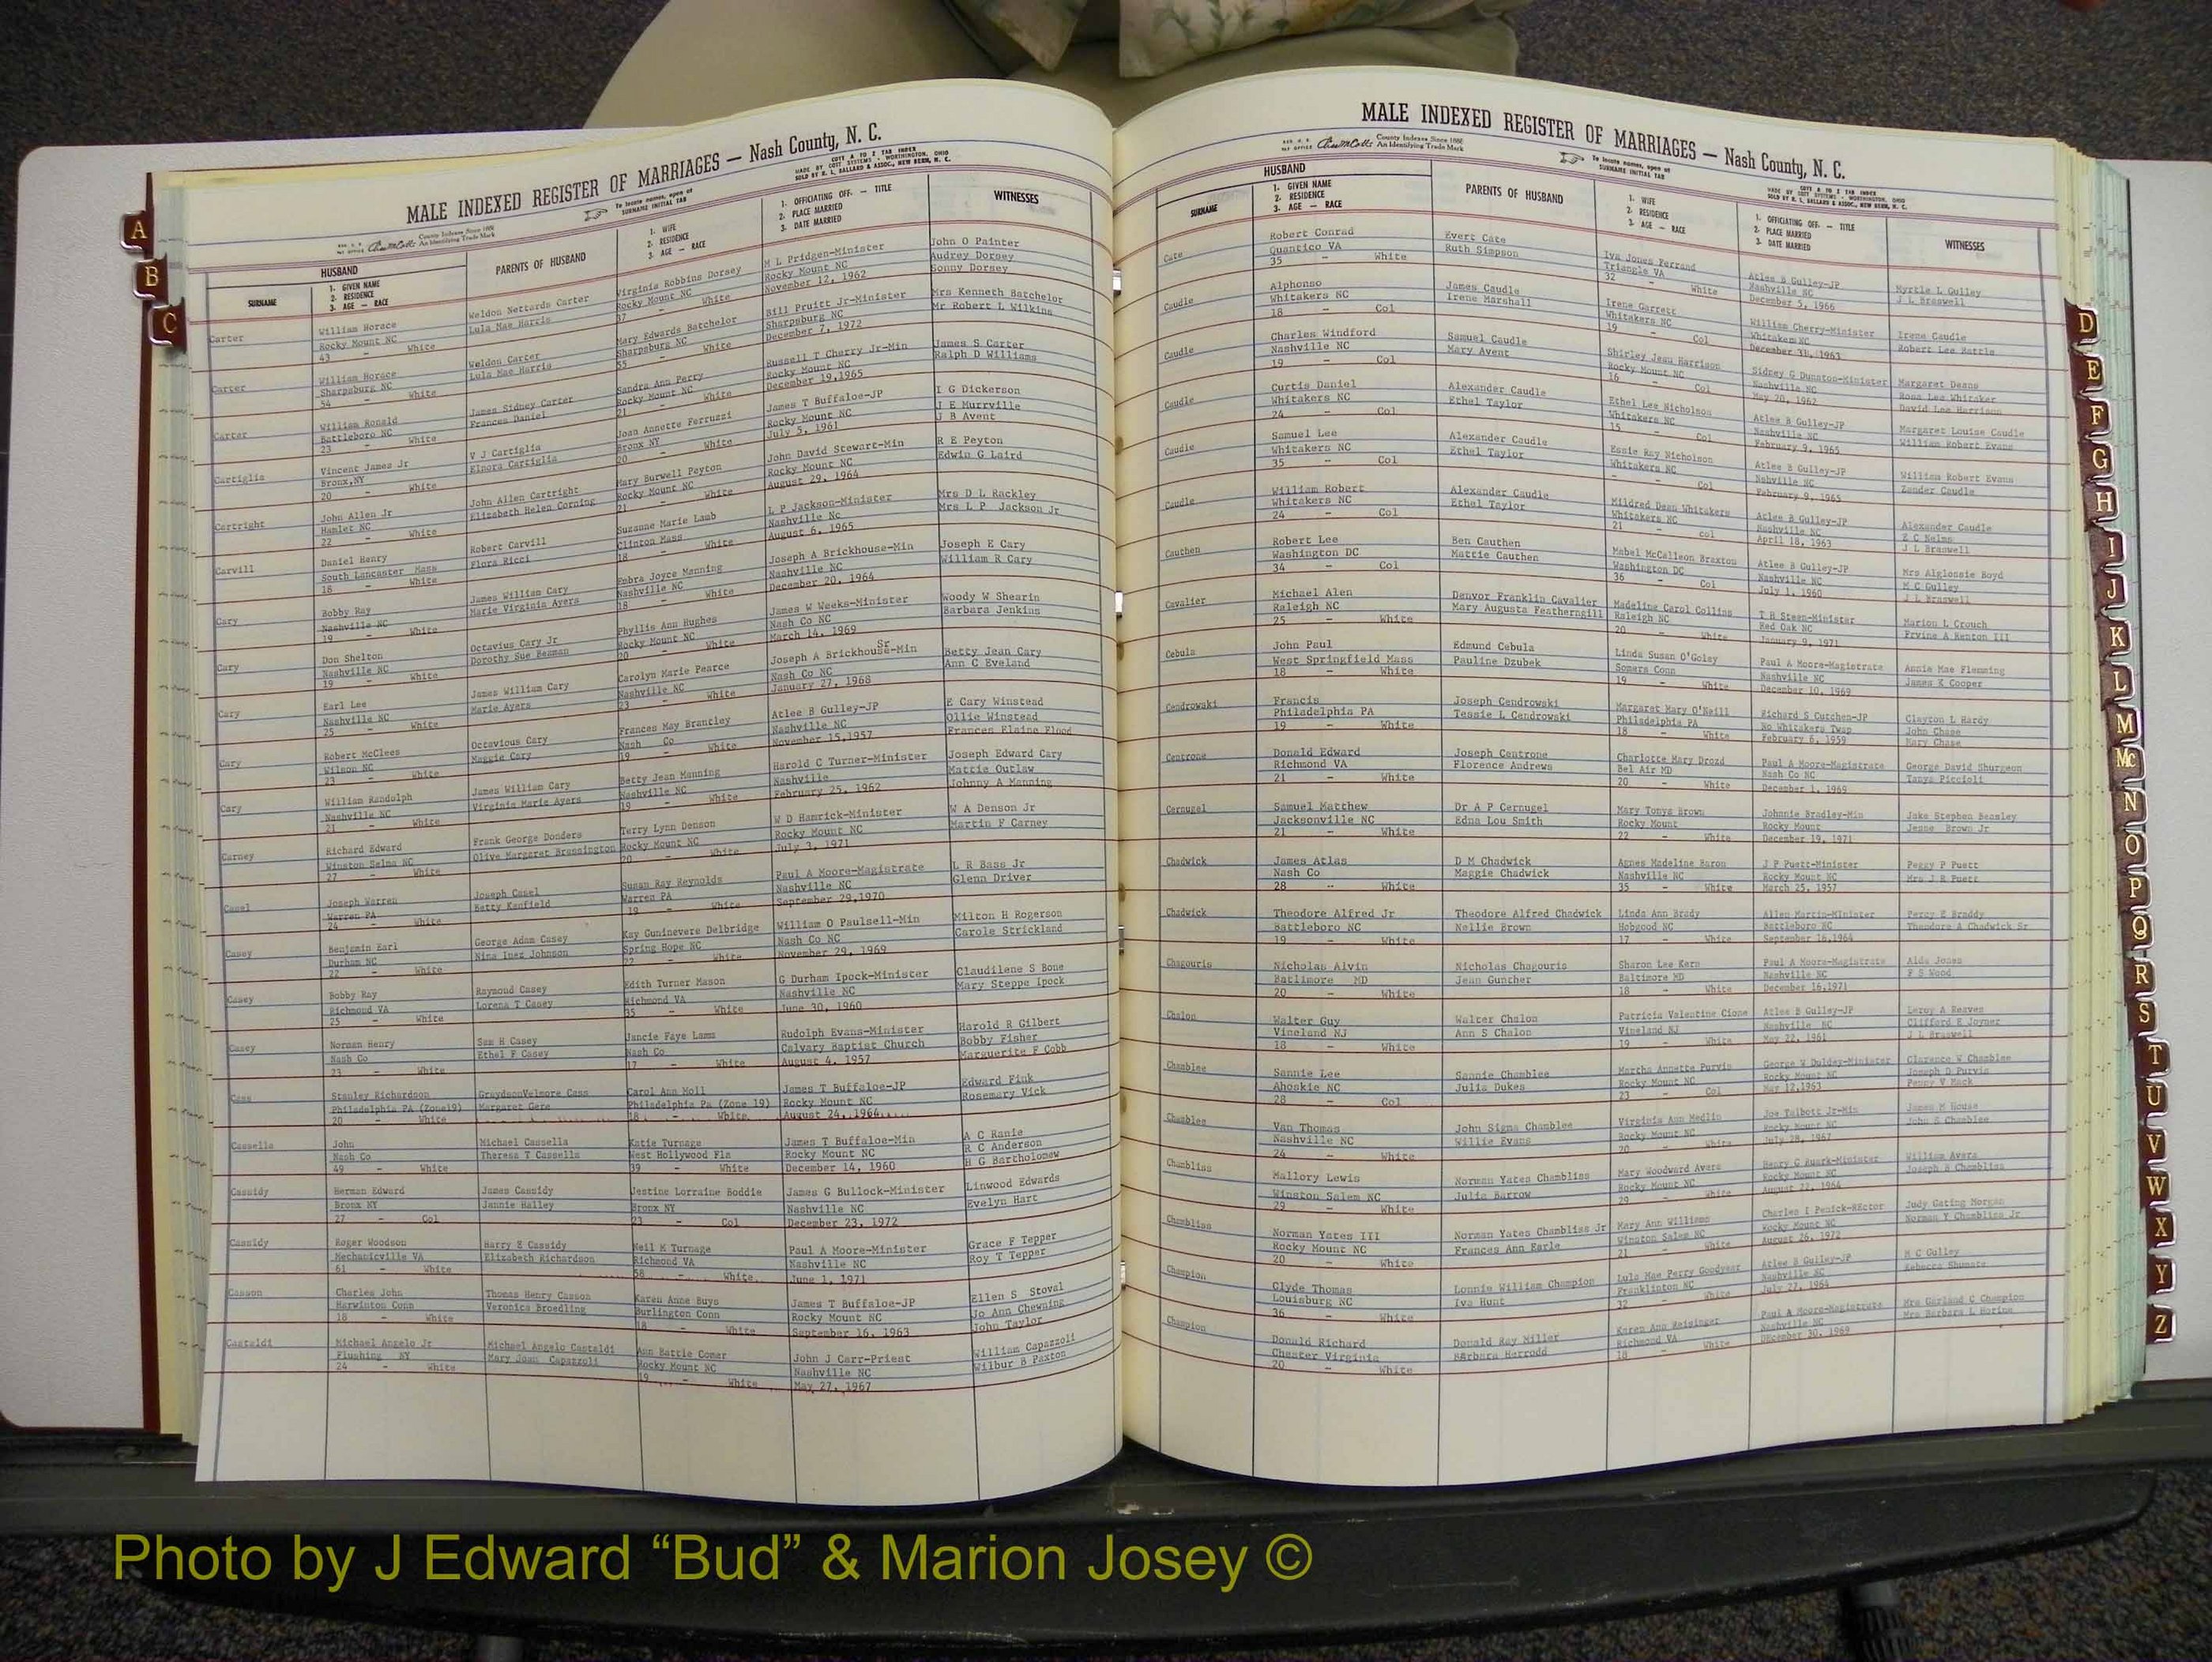 MALE INDEXED REGISTER OF MARRIAGES — Nash County, N. C.
County Indexes Since 1888
An Identifying Trade Mark
To locate names, open at
SURNAME INITIAL TAB
COTT A TO Z TAB INDEX
MADE BY COTT SYSTEMS - WORTHINGTON, OHIO
SOLD BY R. L. BALLARD & ASSOC., NEW BERN, N. C.
HUSBAND
SURNAME
1. GIVEN NAME
2. RESIDENCE
3. AGE — RACE
PARENTS OF HUSBAND
1. WIFE
2. RESIDENCE
3. AGE — RACE
1. OFFICIATING OFF. — TITLE
2. PLACE MARRIED
3. DATE MARRIED
WITNESSES
Carter William Horace Weldon Nettards Carter Virginia Robbins Dorsey M L Pridgen-Minister John O Painter
Rocky Mount NC Lula Mae Harris Rocky Mount NC Rocky Mount NC Audrey Dorsey
43 - White 37 - White November 12, 1962 Sonny Dorsey
Carter William Horace Weldon Carter Mary Edwards Batchelor Bill Pruitt Jr-Minister Mrs Kenneth Batchelor
Sharpsburg NC Lula Mae Harris Sharpsburg NC Sharpsburg NC Mr Robert L Wilkins
54 - White 55 - White December 7, 1972
Carter William Ronald James Sidney Carter Sandra Ann Perry Russell T Cherry Jr-Min James S Carter
Battleboro NC Frances Daniel Rocky Mount NC Rocky Mount NC Ralph D Williams
23 - White 21 - White December 19,1965
Cartiglia Vincent James Jr V J Cartiglia Joan Annette Ferruzzi James T Buffaloe-JP I G Dickerson
Bronx,NY Elnora Cartiglia Bronx NY Rocky Mount NC J E Murrville
20 - White 20 - White July 5, 1961 J B Avent
Cartright John Allen Jr John Allen Cartright Mary Burwell Peyton John David Stewart-Min R E Peyton
Hamlet NC Elizabeth Helen Corning Rocky Mount NC Rocky Mount NC Edwin G Laird
22 - White 21 - White August 29, 1964
Carvill Daniel Henry Robert Carvill Suzanne Marie Lamb L P Jackson-Minister Mrs D L Rackley
South Lancaster Mass Flora Ricci Clinton Mass Nashville Nc Mrs L P Jackson Jr
18 - White 18 - White August 6, 1965
Cary Bobby Ray James William Cary Joyce Manning Joseph A Brickhouse-Min Joseph E Cary
Nashville NC Marie Virginia Ayers Nashville NC Nashville NC William R Cary
19 - White 18 - White December 20, 1964
Cary Don Shelton Octavius Cary Jr Phyllis Ann Hughes James W Weeks-Minister Woody W Shearin
Nashville NC Dorothy Sue Beaman Rocky Mount NC Nash Co NC Barbara Jenkins
19 - White 20 - White March 14, 1969
Cary Earl Lee James William Cary Carolyn Marie Pearce Joseph A Brickhouse Sr-Min Betty Jean Cary
Nashville NC Marie Ayers Nashville NC Nash Co NC Ann C Eveland
25 - White 23 - White January 27, 1968
Cary Robert McClees Octavious Cary Frances May Brantley Atlee B Gulley-JP E Cary Winstead
Wilson NC Maggie Cary Nash Co Nashville NC Ollie Winstead
23 - White 19 - White November 15,1957 Frances Elaine Flood
Cary William Randolph James William Cary Betty Jean Manning Harold C Turner-Minister Joseph Edward Cary
Nashville NC Virginia Marie Ayers Nashville NC Nashville Mattie Outlaw
21 - White 19 - White February 25, 1962 Johnny A Manning
Carney Richard Edward Frank George Donders Terry Lynn Denson W D Hamrick-Minister W A Denson Jr
Winston Selma NC Olive Margaret Brannington Rocky Mount NC Rocky Mount NC Martin F Carney
27 - White 20 - White July 3, 1971
Casel Joseph Warren Joseph Casel Susan Ray Reynolds Paul A Moore-Magistrate L R Bass Jr
Warren PA Betty Kenfield Warren PA Nashville NC Glenn Driver
24 - White 19 - White September 29,1970
Casey Benjamin Earl George Adam Casey Kay Guninevere Delbridge William O Paulsell-Min Milton H Rogerson
Durham NC Nina Inez Johnson Spring Hope NC Nash Co NC Carole Strickland
22 - White 22 - White November 29, 1969
Casey Bobby Ray Raymond Casey Edith Turner Mason G Durham Ipock-Minister Claudilene S Bone
Richmond VA Lorena T Casey Richmond VA Nashville NC Mary Steppe Ipock
25 - White 35 - White June 30, 1960
Casey Norman Henry Sam H Casey Jancie Faye Lamm Rudolph Evans-Minister Harold R Gilbert
Nash Co Ethel F Casey Nash Co Calvary Baptist Church Bobby Fisher
23 - White 17 - White August 4, 1957 Marguerite F Cobb
Cass Stanley Richardson GraydsonVelmore Cass Carol Ann Moll James T Buffaloe-JP Edward Fink
Philadelphia PA (Zone19) Margaret Gere Philadelphia Pa (Zone 19) Rocky Mount NC Rosemary Vick
20 - White 18 - White August 24, 1964
Cassella John Michael Cassella Katie Turnage James T Buffaloe-Min A C Ranie
Nash Co Theresa T Cassella West Hollywood Fla Rocky Mount NC R C Anderson
49 - White 39 - White December 14, 1960 H G Bartholomew
Cassidy Herman Edward James Cassidy Jestine Lorraine Boddie James G Bullock-Minister Linwood Edwards
Bronx NY Jannie Halley Bronx NY Nashville NC Evelyn Hart
27 - Col 23 - Col December 23, 1972
Cassidy Roger Woodson Harry E Cassidy Neil M Turnage Paul A Moore-Minister Grace F Tepper
Mechanicville VA Elizabeth Richardson Richmond VA Nashville NC Roy T Tepper
61 - White 58 - White June 1, 1971
Casson Charles John Thomas Henry Casson Karen Anne Buys James T Buffaloe-JP Ellen S Stoval
Harwinton Conn Veronica Broedling Burlington Conn Rocky Mount NC Jo Ann Chewning
18 - White 18 - White September 16, 1963 John Taylor
Castaldi Michael Angelo Jr Michael Angelo Castaldi Ann Battle Comer John J Carr-Priest William Capazzoli
Flushing NY Mary Joan Capazzoli Rocky Mount NC Nashville NC Wilbur B Paxton
24 - White 19 - White May 27, 1967
MALE INDEXED REGISTER OF MARRIAGES — Nash County, N. C.
County Indexes Since 1888
An Identifying Trade Mark
To locate names, open at
SURNAME INITIAL TAB
COTT A TO Z TAB INDEX
MADE BY COTT SYSTEMS - WORTHINGTON, OHIO
SOLD BY R. L. BALLARD & ASSOC., NEW BERN, N. C.
HUSBAND
SURNAME
1. GIVEN NAME
2. RESIDENCE
3. AGE — RACE
PARENTS OF HUSBAND
1. WIFE
2. RESIDENCE
3. AGE — RACE
1. OFFICIATING OFF. — TITLE
2. PLACE MARRIED
3. DATE MARRIED
WITNESSES
Cate Robert Conrad Evert Cate Iva Jones Ferrand Atlee B Gulley-JP Myrtle L Gulley
Quantico VA Ruth Simpson Triangle VA Nashville NC J L Braswell
35 - White 32 - White December 5, 1966
Caudle Alphonso James Caudle Irene Garrett William Cherry-Minister Irene Caudle
Whitakers NC Irene Marshall Whitakers NC Whitakers NC Robert Lee Battle
18 - Col 19 - Col December 31, 1963
Caudle Charles Windford Samuel Caudle Shirley Jean Harrison Sidney G Dunston-Minister Margaret Deans
Nashville NC Mary Avent Rocky Mount NC Nashville NC Rosa Lee Whitaker
19 - Col 16 - Col May 20, 1962 David Lee Harrison
Caudle Curtis Daniel Alexander Caudle Ethel Lee Nicholson Atlee B Gulley-JP Margaret Louise Caudle
Whitakers NC Ethel Taylor Whitakers NC Nashville NC William Robert Evans
24 - Col 15 - Col February 9, 1965
Caudle Samuel Lee Alexander Caudle Essie Ray Nicholson Atlee B Gulley-JP William Robert Evans
Whitakers NC Ethel Taylor Whitakers NC Nahville NC Zander Caudle
35 - Col - Col February 9, 1965
Caudle William Robert Alexander Caudle Mildred Dean Whitakers Atlee B Gulley-JP Alexander Caudle
Whitakers NC Ethel Taylor Whitakers NC Nashville NC E C Nelms
24 - Col 21 - col April 18, 1963 J L Braswell
Cauthen Robert Lee Ben Cauthen Mabel McCalleon Braxton Atlee B Gulley-JP Mrs Alglossie Boyd
Washington DC Mattie Cauthen Washington DC Nashville NC M C Gulley
34 - Col 36 - Col July 1, 1960 J L Braswell
Cavalier Michael Alen Denvor Franklin Cavalier Madeline Carol Collins T H Steen-Minister Marion L Crouch
Raleigh NC Mary Augusta Featherngill Raleigh NC Red Oak NC Ervine A Renton III
25 - White 20 - White January 9, 1971
Cebula John Paul Edmund Cebula Linda Susan O'Goley Paul A Moore-Magistrate Annie Mae Flemming
West Springfield Mass Pauline Dzubek Somers Conn Nashville NC James K Cooper
18 - White 19 - White December 10, 1969
Cendrowski Francis Joseph Cendrowski Margaret Mary O'Neill Richard S Cutchen-JP Clayton L Hardy
Philadelphia PA Tessie L Cendrowski Philadelphia PA No Whitakers Twsp John Chase
19 - White 18 - White February 6, 1959 Mary Chase
Centrone Donald Edward Joseph Centrone Charlotte Mary Drozd Paul A Moore-Magistrate George David Shurgeon
Richmond VA Florence Andrews Bel Air MD Nash Co NC Tanya Piccioli
21 - White 20 - White December 1, 1969
Cernugel Samuel Matthew Dr A P Cernugel Mary Tonya Brown Johnnie Bradley-Min Jake Stephen Beasley
Jacksonville NC Edna Lou Smith Rocky Mount Rocky Mount Jesse Brown Jr
21 - White 22 - White December 19, 1971
Chadwick James Atlas D M Chadwick Agnes Madeline Baron J P Puett-Minister Peggy P Puett
Nash Co Maggie Chadwick Nashville NC Rocky Mount NC Mrs J R Puett
28 - White 35 - White March 25, 1957
Chadwick Theodore Alfred Jr Theodore Alfred Chadwick Linda Ann Brady Allen Martin-Minister Percy E Braddy
Battleboro NC Nellie Brown Hobgood NC Battleboro NC Theodore A Chadwick Sr
19 - White 17 - White September 16,1964
Chagouris Nicholas Alvin Nicholas Chagouris Sharon Lee Kern Paul A Moore-Magistrate Alda Jones
Batlimore MD Jean Guncher Baltimore MD Nashville NC F S Wood
20 - White 18 - White December 16,1971
Chalon Walter Guy Walter Chalon Patricia Valentine Cione Atlee B Gulley-JP Leroy A Reaves
Vineland NJ Ann S Chalon Vineland NJ Nashville NC Clifford E Joyner
18 - White 19 - White May 22, 1961 J L Braswell
Chamblee Sannie Lee Sannie Chamblee Martha Annette Purvis George W Dudley-Minister Clarence W Chamblee
Ahoskie NC Julia Dukes Rocky Mount NC Rocky Mount NC Joseph D Purvis
28 - Col 23 - Col May 12,1963 Penny V Mack
Chamblee Van Thomas John Signa Chamblee Virginia Ann Medlin Joe Talbott Jr-Min James M House
Nashville NC Willie Evans Rocky Mount NC Rocky Mount NC John S Chamblee
24 - White 20 - White July 28, 1967
Chambliss Mallory Lewis Norman Yates Chambliss Mary Woodward Avera Henry G Ruark-Minister William Avera
Winston Salem NC Julia Barrow Rocky Mount NC Rocky Mount NC Joseph B Chambliss
29 - White 29 - White August 22, 1964
Chambliss Norman Yates III Norman Yates Chambliss Jr Mary Ann Williams Charles I Penick-REctor Judy Gating Morgan
Rocky Mount NC Frances Ann Earle Winston Salem NC Rocky Mount NC Norman Y Chambliss Jr
20 - White 21 - White August 26, 1972
Champion Clyde Thomas Lonnie William Champion Lula Mae Perry Goodyear Atlee B Gulley-JP M C Gulley
Louisburg NC Iva Hunt Franklinton NC Nashville NC Rebecca Shumate
36 - White 32 - White July 27, 1964
Champion Donald Richard Donald Ray Miller Karen Ann Reisinger Paul A Moore-Magistrate Mrs Garland C Champion
Chester Virginia BArbara Herrodd Richmond VA Nashville NC Mrs Barbara L Horine
20 - White 18 - White DEcember 30, 1969
A
B
C
D
E
F
G
H
I
J
K
L
M
Mc
N
O
P
Q
R
S
T
U
V
W
X
Y
Z
Photo by J Edward “Bud” & Marion Josey ©